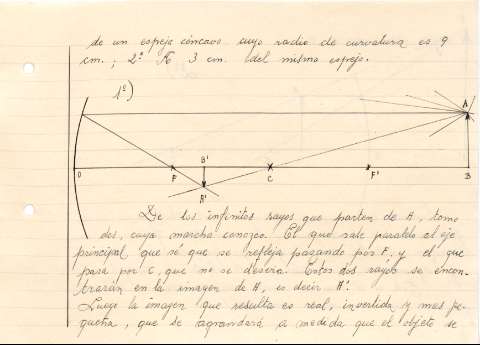 de un espejo cóncavo cuyo radio de curvatura es 9
cm.; 2º A 3 cm. del mismo espejo.
1º)
A
B'
O F C F' B
A'
De los infinitos rayos que parten de A, tomo
dos, cuya marcha conozco. El que sale paralelo al eje
principal que sé que se refleja pasando por F, y el que
pasa por C, que no se desvía. Estos dos rayos se encon-
trarán en la imagen de A, es decir A'.
Luego la imagen que resulta es real, invertida y mas pe-
queña, que se agrandará a medida que el objeto se